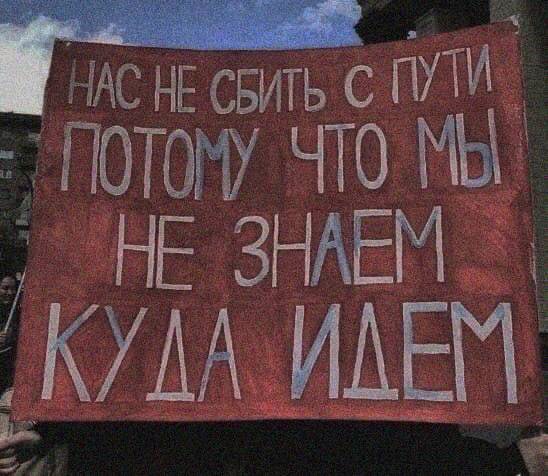 НАС НЕ СБИТЬ С ПУТИ
ПОТОМУ ЧТО МЫ
НЕ ЗНАЕМ
КУДА ИДЕМ